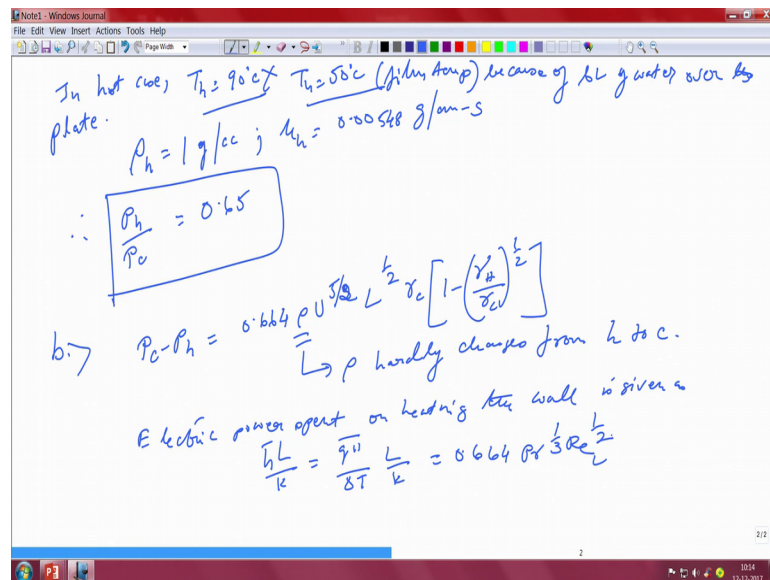 Note1 - Windows Journal
File Edit View Insert Actions Tools Help
Page Width
In hot case, T_h = 90°C X T_h = 50°C (film temp) because of bL of water over the
plate.
ρ_h = 1 g/cc ; μ_h = 0.00548 g/cm-s
∴ P_h/P_c = 0.65
b.> P_c - P_h = 0.664 ρ U^{5/2} L^{1/2} ν_c [1 - (ν_H/ν_c)^{1/2}]
↳ ρ hardly changes from h to c.
Electric power spent on heating the wall is given as
h̄L/k = q̄"/ΔT L/k = 0.664 Pr^{1/3} Re_L^{1/2}
2/2
2
10:14
12-12-2017